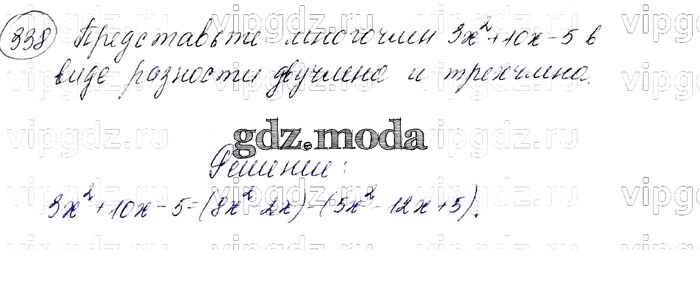 338 Представьте многочлен 3x²+10x-5 в
виде разности двучлена и трехчлена.
gdz.moda
Решение:
3x²+10x-5=(8x²-2x)-(5x²-12x+5).